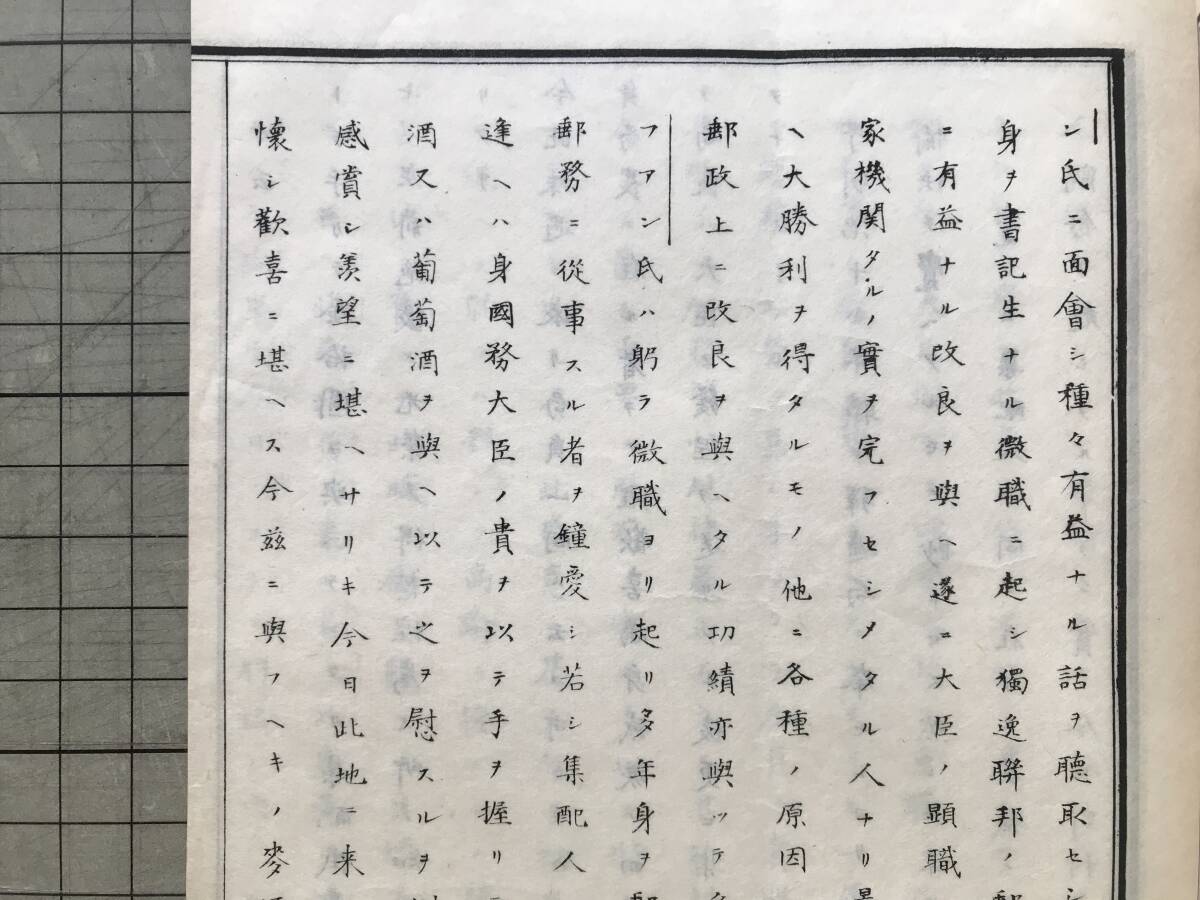 ン氏ニ面會シ種々有益ナル話ヲ聽取セシ
身ヲ書記生ナル微職ニ起シ獨逸聯邦ノ郵
ニ有益ナル改良ヲ與ヘ遂ニ大臣ノ顯職
家機関タルノ實ヲ完フセシメタル人ナリ
ヘ大勝利ヲ得タルモノ他ニ各種ノ原因
郵政上ニ改良ヲ與ヘタル功績亦與ツテ
フアン氏ハ躬ラ微職ヨリ起リ多年身ヲ郵
郵務ニ從事スル者ヲ鐘愛シ若シ集配人
逢ヘハ身國務大臣ノ貴ヲ以テ手ヲ握リ
酒又ハ葡萄酒ヲ與ヘ以テ之ヲ慰スルヲ
感賞シ羨望ニ堪ヘサリキ今日此地ニ来
懐シ歡喜ニ堪ヘス今茲ニ與フヘキノ麥